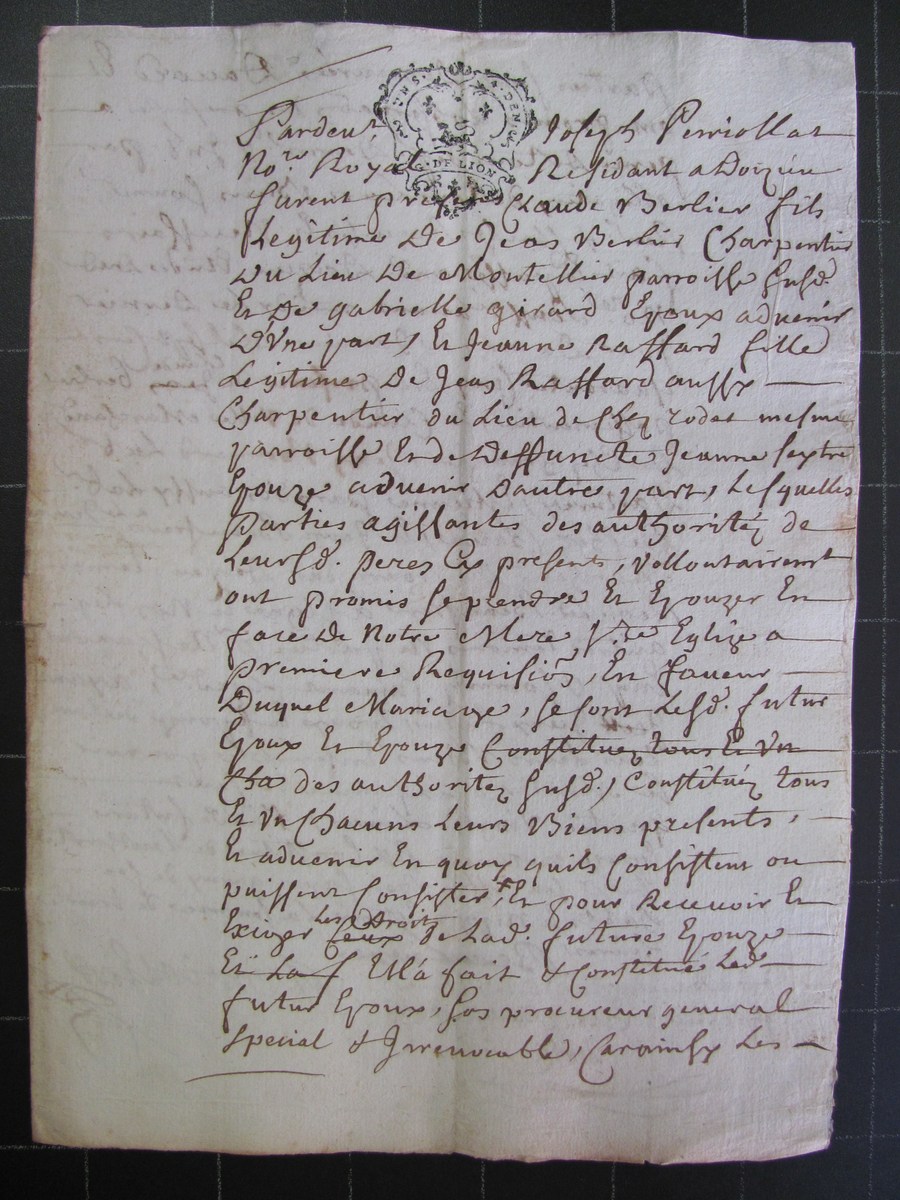 UN S. 4. DENIERS
G. DE LION
Pardevt Joseph Perriollat
No.re Royal Residant a Doizieu
furent pre Claude Berlier fils
Legitime de Jeas Berlier Charpentier
Du Lieu De Montellier parroisse susd.
Et De gabrielle girard Epoux advenir
D'Une part, Et Jeanne Raffard fille
Legitime De Jeas Raffard aussy
Charpentier du Lieu de Chez rodet mesme
parroisse Et de Deffuncte Jeanne sextre
Epouze advenir D'autre part, Lesquelles
parties agissantes des authoritéz de
Leursd. peres Cy presents, vollontairemt
ont promis se prendre Et Epouzer En
face De Notre Mere Ste Eglize a
premiere Requisiōn, En faveur
Duquel Mariage, se sont Lesd. futur
Epoux Et Epouze Constituez tous Et Un
Cha des authoritez susd.) Constituéz tous
Et Un Chacuns Leurs Biens presents,
Et advenir En quoy quils Consistent ou
puissent Consister, Et pour Recevoir Et
Les Droits
Exiger Ceux de Lad. future Epouze
Et La f Ell'a fait & Constitué Led.
futur Epoux, Sos procureur general
special & Irrevocable, Carainsy Les